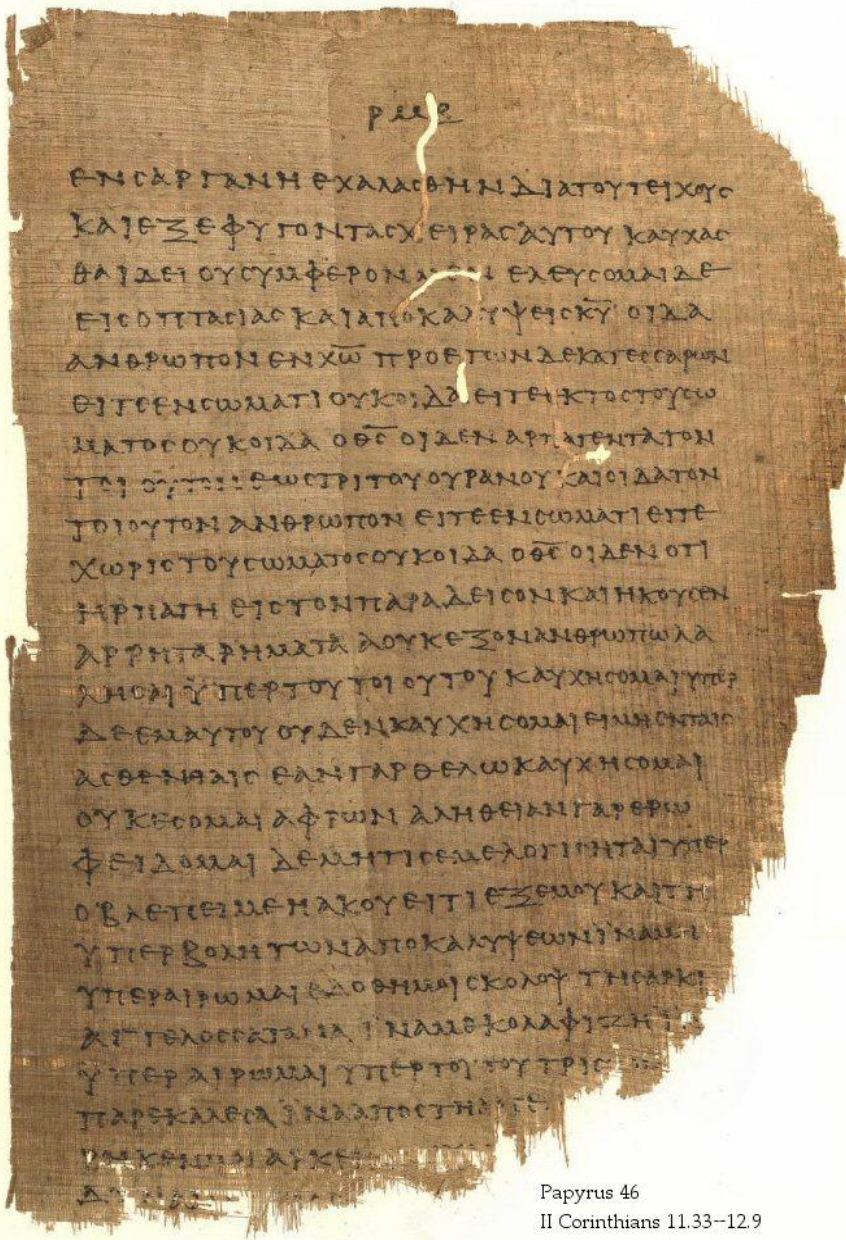 ρμε
ενσαργανηεχαλασθηνδιατουτειχους
καιεξεφυγοντασχειρασαυτου καυχας
θαιδει ουσυμφερονμεν ελευσομαιδε
εισοπτασιασκαιαποκαλυψεισκ̅υ̅ οιδα
ανθρωπονενχ̅ω̅ προετωνδεκατεσσαρων
ειτεενσωματιουκοιδαειτεεκτοστουσω
ματοσουκοιδα οθ̅ς̅ οιδεναρπαγεντατον
τοιουτονεωστριτουουρανουκαιοιδατον
τοιουτονανθρωπονειτεενσωματιειτε
χωριστουσωματοσουκοιδα οθ̅ς̅ οιδενοτι
ηρπαγηειστονπαραδεισονκαιηκουσεν
αρρηταρηματα αουκεξονανθρωπωλα
λησαιϋπερτουτοιουτουκαυχησομαιυπερ
δεεμαυτουουδενκαυχησομαιειμηενταις
ασθενηαις εανγαρθελωκαυχησομαι
ουκεσομαιαφρων αληθειανγαρερω
φειδομαι δεμητισεμελογισηταιυπερ
οβλεπειμεηακουειτιεξεμουκαιτη
υπερβοληητωναποκαλυψεωνϊναμη
υπεραιρωμαιεδοθημοισκολοψ τησαρκι
αγγελοσσατανα ϊναμεκολαφιζη
ϋπεραιρωμαι υπερτουτουτρις
παρεκαλεσα ϊνααποστη
ρηκενμοιαρκε
δυναμ
Papyrus 46
II Corinthians 11.33--12.9